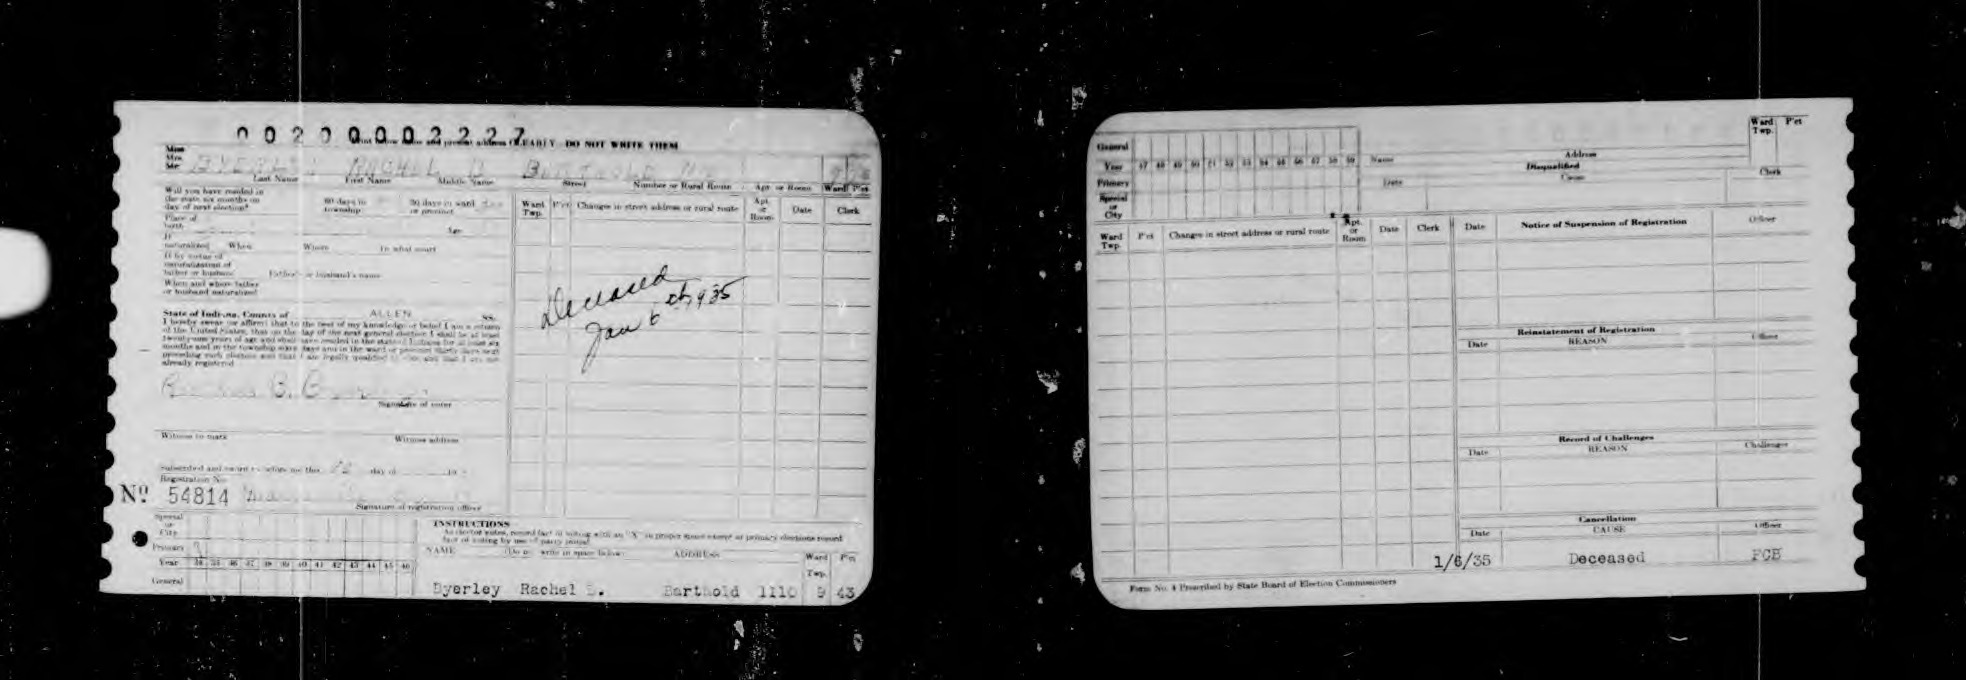 0020002227
Print below name and present address CLEARLY DO NOT WRITE THEM
Miss
Mrs.
Mr.
BYERLEY RACHEL B BARTHOLD 1110
Last Name First Name Middle Name Street Number or Rural Route Apt. or Room Ward P'ct
Will you have resided in
the state six months on
day of next election?
60 days in
township
30 days in ward
or precinct
Place of
birth
Age
If
naturalized When Where In what court
If by virtue of
naturalization of
father or husband Father's or husband's name
When and where father
or husband naturalized
State of Indiana, County of ALLEN ss.
I hereby swear (or affirm) that to the best of my knowledge or belief I am a citizen
of the United States, that on the day of the next general election I shall be at least
twenty-one years of age and shall have resided in the state of Indiana for at least six
months and in the township sixty days and in the ward or precinct thirty days next
preceding such election and that I am legally qualified to vote and that I am not
already registered
Signature of voter
Witness to mark Witness address
Subscribed and sworn to before me this 12 day of 19
Registration No.
Nº 54814
Signature of registration officer
Special
or
City
Primary
Year 34 35 36 37 38 39 40 41 42 43 44 45 46
General
Ward
Twp.
P'ct Changes in street address or rural route
Apt.
or
Room
Date Clerk
Deceased
Jan 6th 1935
INSTRUCTIONS
As elector votes, record fact of voting with an "X" in proper space except at primary elections record
fact of voting by use of party initial
NAME (Do not write in space below) ADDRESS Ward P'ct
Twp.
Byerley Rachel B. Barthold 1110 9 43
General
Year 47 48 49 50 51 52 53 54 55 56 57 58 59
Primary
Special
or
City
Name Address
Ward
Twp.
P'ct
Disqualified
Date Cause Clerk
Ward
Twp.
P'ct Changes in street address or rural route
Apt.
or
Room
Date Clerk
Date Notice of Suspension of Registration Officer
Reinstatement of Registration
Date REASON Officer
Record of Challenges
Date REASON Challenger
Cancellation
Date CAUSE Officer
1/6/35 Deceased FCB
Form No. 4 Prescribed by State Board of Election Commissioners